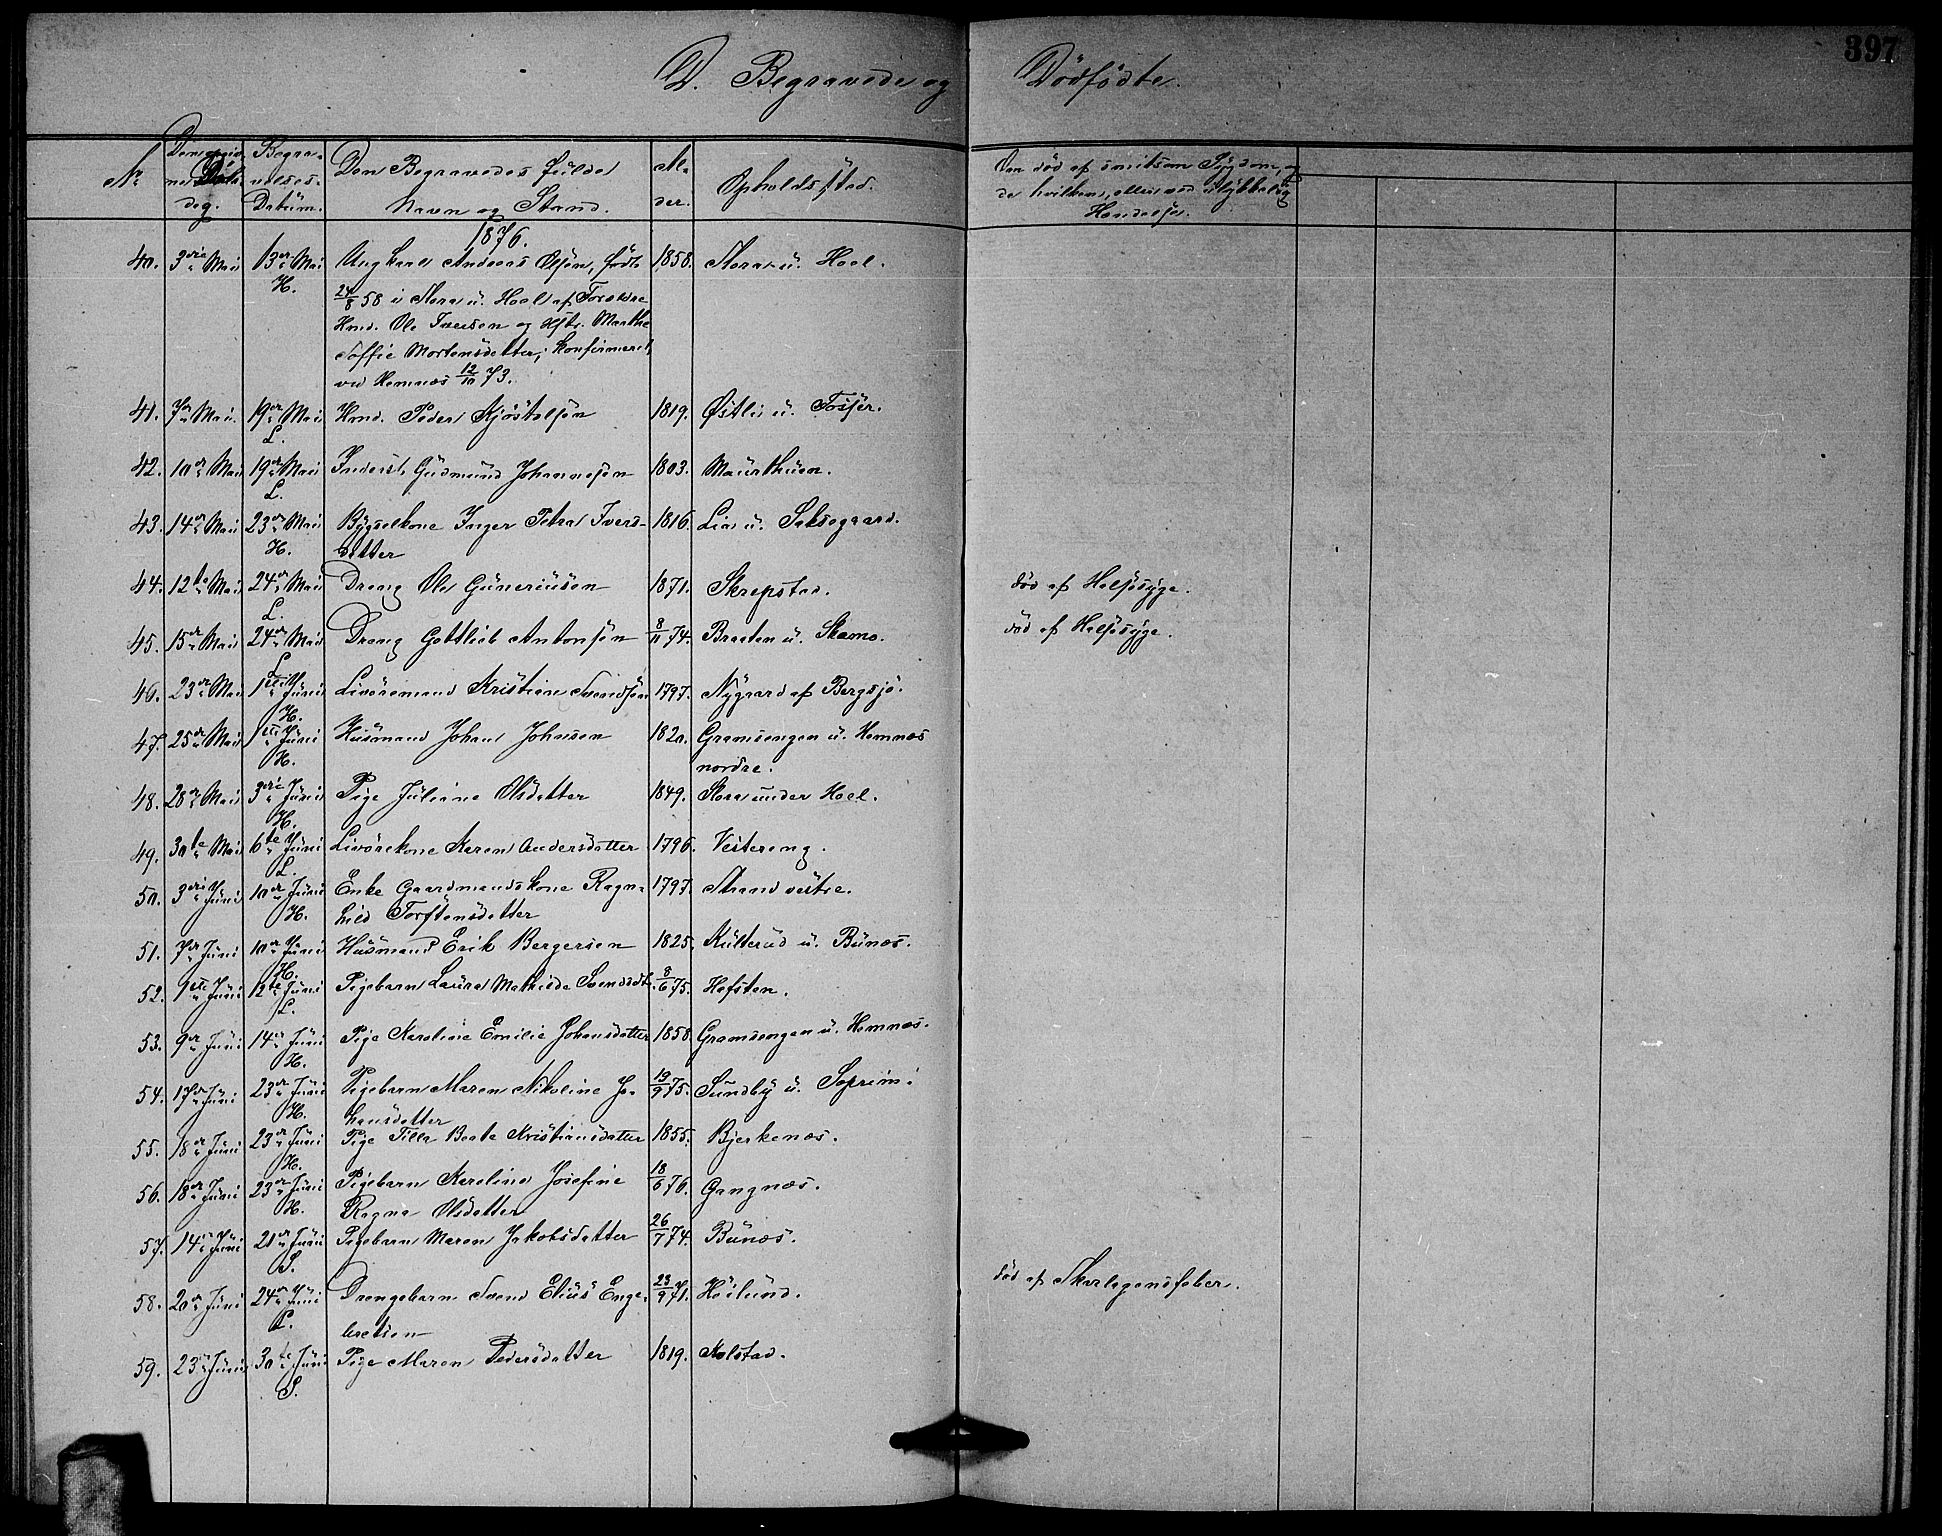 397
D. Begravede og Dödfödte.
No
Den
Döds-
dag.
Begra-
velses-
Datum.
Den Begravedes fulde
Navn og Stand.
Al-
der.
Opholdssted.
Om död af smitsom Sygdom, og
da hvilken, eller ved ulykkelig
Hendelse.
1876.
40. 3die Mai 13de Mai Ungkarl Andreas Olsen, födt 1858. Mora u. Hoel.
H. 24/8 58 i Mora u. Hoel af Forældre
Hmd. Ole Iversen og Hstr. Marthe
Soffie Mortensdatter; konfirmeret
ved Hemnæs 12/10 73.
41. 7de Mai. 19de Mai Hmd. Peder Kjöstolsen 1819. Østli u. Fosser.
L.
42. 10de Mai 19de Mai Inderst Gudmund Johannesen 1803. Maurthuen.
L.
43. 14de Mai 23de Mai Bygselkone Inger Petra Ivers- 1816. Lia u. Saksegaard.
H. datter
44. 12te Mai 24de Mai Dreng Ole Guneriusen 1871. Skrepstad. död af Halssyge.
L.
45. 15de Mai 24de Mai Dreng Gottlieb Antonsen 8/11 74. Braaten u. Skamo. död af Halssyge.
L.
46. 23de Mai 1ste Juni Livöremand Kristian Svendsen 1797. Nygaard af Bergsjö.
H.
47. 25de Mai 1ste Juni Husmand Johan Johnsen 1820. Gramsengen u. Hemnæs
H. nordre.
48. 28de Mai 3die Juni Pige Juliane Olsdatter 1849. Mora under Hoel.
H.
49. 30te Mai 6te Juni Livörekone Karen Andersdatter 1796. Vestereng.
L.
50. 3die Juni 10de Juni Enke Gaardmandskone Ragn- 1797. Strand vestre.
H. hild Torstensdatter
51. 7de Juni 10de Juni Husmand Erik Bergersen 1825. Kulterud u. Bunæs.
H.
52. 9de Juni 12te Juni Pigebarn Laura Mathilde Svendsdt. 8/6 75. Hafsten.
L.
53. 9de Juni 14de Juni Pige Karoline Emilie Johansdatter 1858. Gramsengen u. Hemnæs.
H.
54. 17de Juni 23de Juni Pigebarn Maren Nikoline Jo- 19/9 75. Sundby u. Soprim:
H. hansdatter
55. 18de Juni 23de Juni Pige Tilla Beate Kristiansdatter 1855. Bjerkenæs.
H.
56. 18de Juni 23de Juni Pigebarn Karoline Josefine 18/6 76. Gangnæs.
H. Ragna Olsdatter
57. 14de Juni 21de Juni Pigebarn Maren Jakobsdatter 26/7 74. Bunæs.
S.
58. 20de Juni 24de Juni Drengebarn Svend Elius Enge- 23/9 71. Höilund. död af Skarlagensfeber.
L. bretsen
59. 23de Juni 30te Juni Pige Maren Pedersdatter 1819. Kolstad.
S.